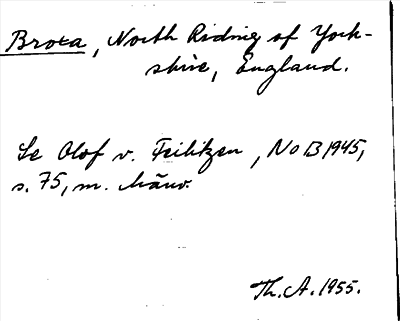 Broxa, North Riding of York-
shire, England.
Se Olof v. Feilitzen, NoB 1945,
s. 75, m. hänv.
Th. A. 1955.